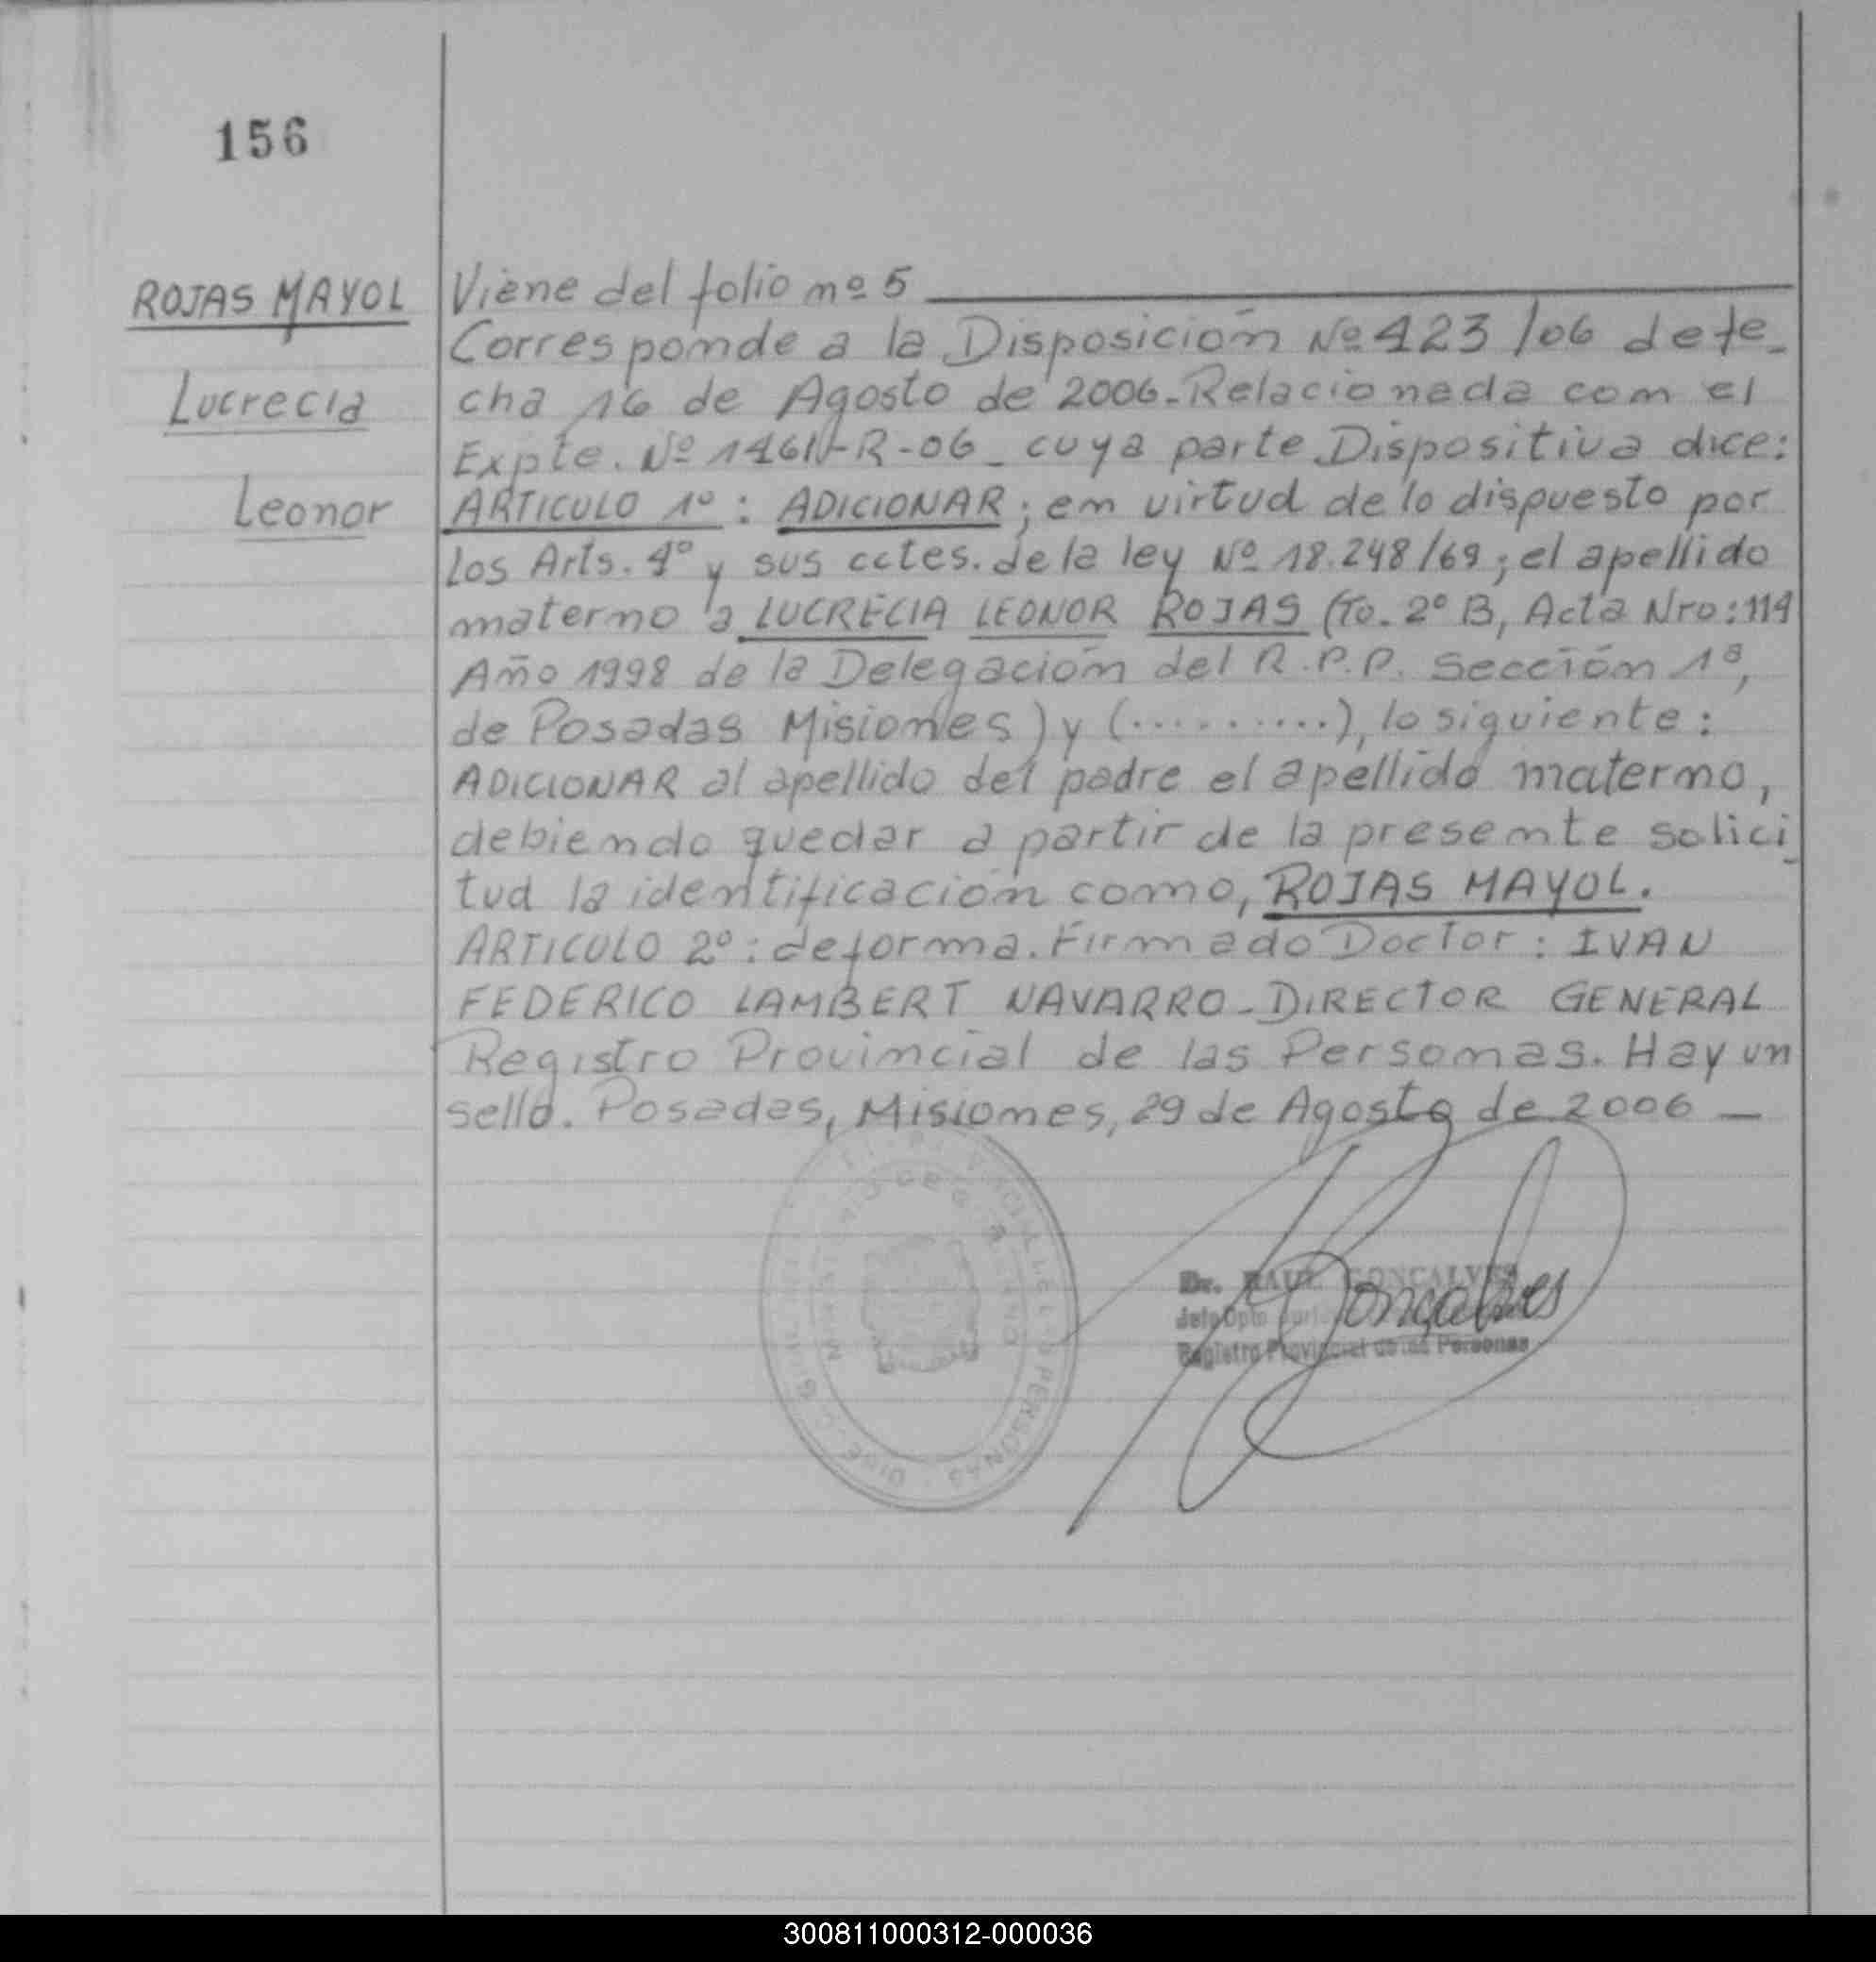 156
ROJAS MAYOL
Lucrecia
Leonor
Viene del folio nº 5
Corresponde a la Disposición Nº 423/06 de fe-
cha 16 de Agosto de 2006-Relacionada con el
Expte. Nº -R-06- cuya parte Dispositiva dice:
ARTICULO 1º: ADICIONAR; en virtud de lo dispuesto por
los Arts. 4º y sus cctes. de la ley Nº 18.248/69; el apellido
materno a LUCRECIA LEONOR ROJAS (To. 2º B, Acta Nro: 114
Año 1998 de la Delegación del R.P.P. Sección 1ª,
de Posadas Misiones) y (..........), lo siguiente:
ADICIONAR al apellido del padre el apellido materno,
debiendo quedar a partir de la presente solici-
tud la identificación como, ROJAS MAYOL.
ARTICULO 2º: de forma. Firmado Doctor: IVAN
FEDERICO LAMBERT NAVARRO-DIRECTOR GENERAL
Registro Provincial de las Personas. Hay un
sello. Posadas, Misiones, 29 de Agosto de 2006 —
Dr. RAUL GONCALVES
Jefe Dpto
Registro Provincial de las Personas
Goncalves
PERSONAS
300811000312-000036